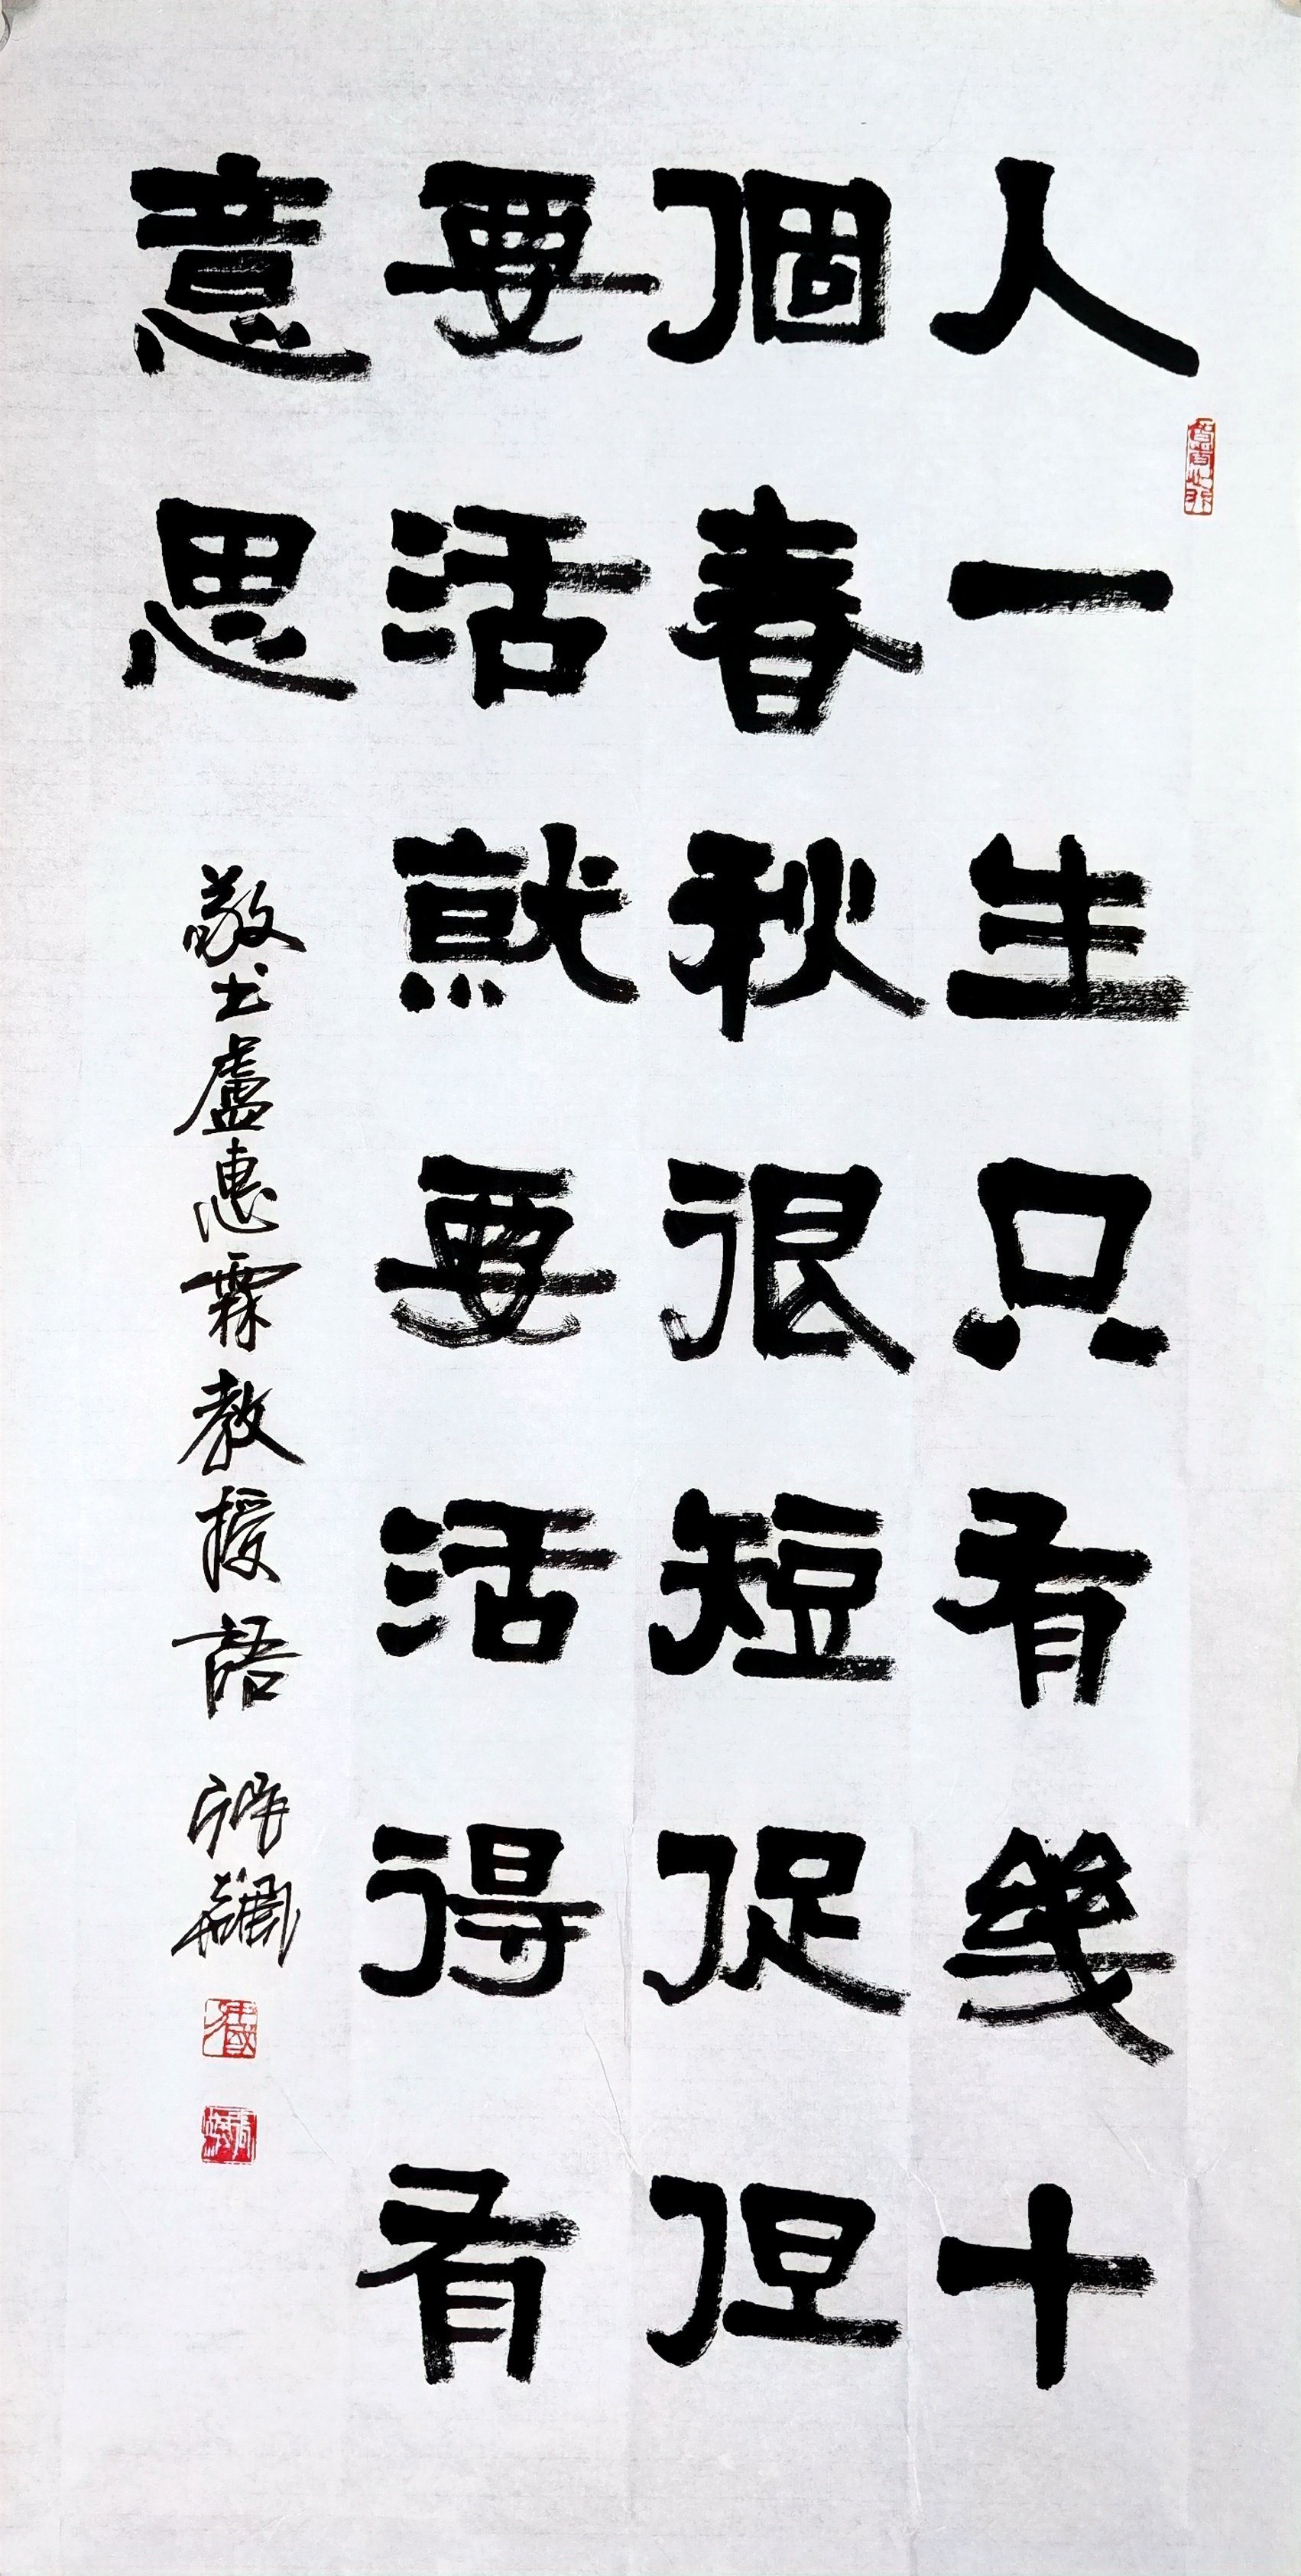 人一生只有幾十
個春秋很短促但
要活就要活得有
意思
敬书盧惠霖教授語